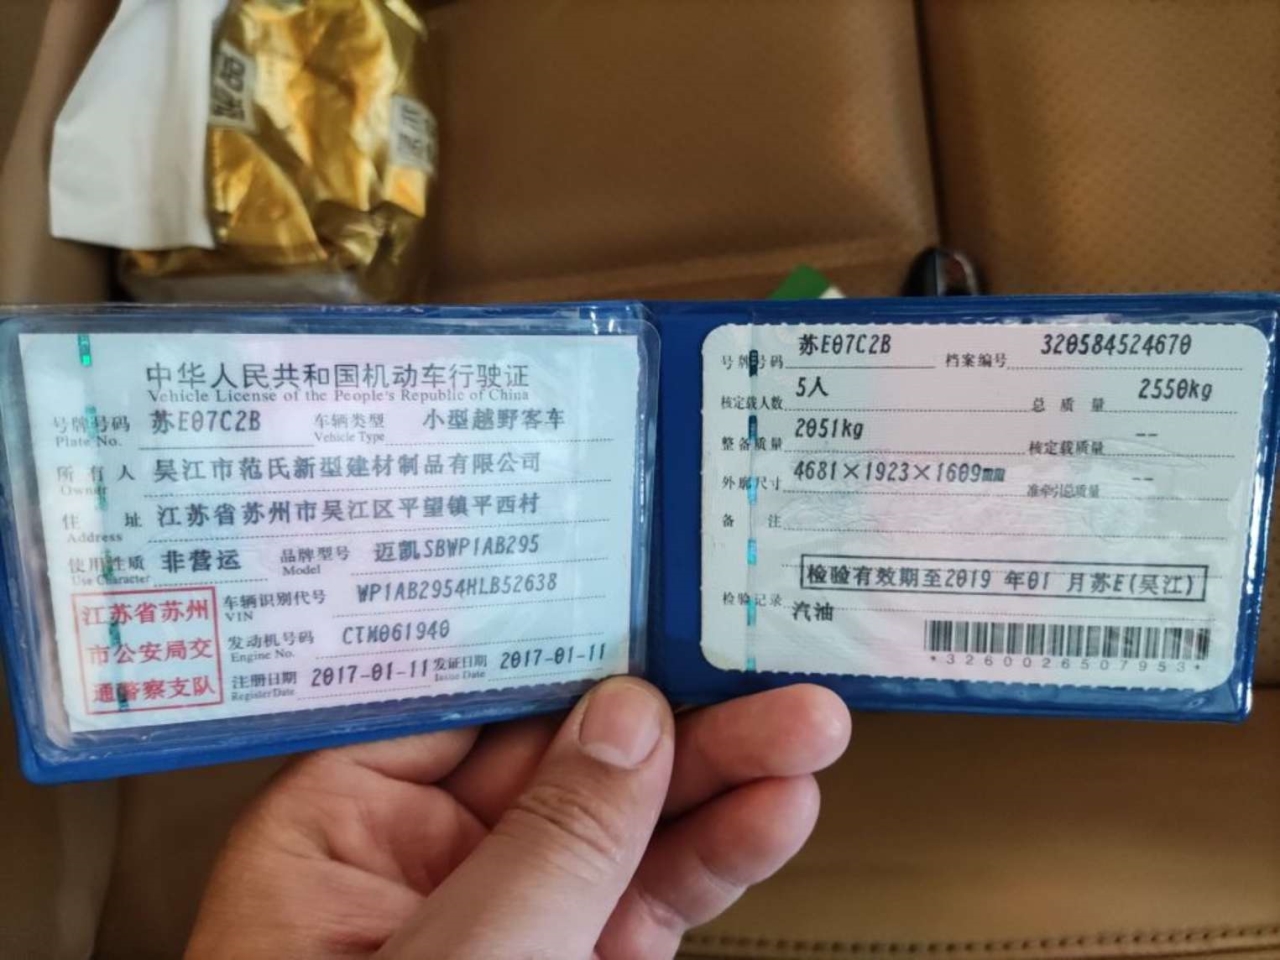 中华人民共和国机动车行驶证
Vehicle License of the People's Republic of China
号牌号码 苏E07C2B 车辆类型 小型越野客车
Plate No. Vehicle Type
所有人 吴江市范氏新型建材制品有限公司
Owner
住址 江苏省苏州市吴江区平望镇平西村
Address
使用性质 非营运 品牌型号 迈凯SBWP1AB295
Use Character Model
江苏省苏州
市公安局交
通警察支队
车辆识别代号 WP1AB2954HLB52638
VIN
发动机号码 CTM061940
Engine No.
注册日期 2017-01-11 发证日期 2017-01-11
Register Date Issue Date
号牌号码 苏E07C2B 档案编号 320584524670
核定载人数 5人 总质量 2550kg
整备质量 2051kg 核定载质量 --
外廓尺寸 4681×1923×1609mm 准牵引总质量 --
备注
检验有效期至2019 年01 月苏E(吴江)
检验记录 汽油
*3260026507953*